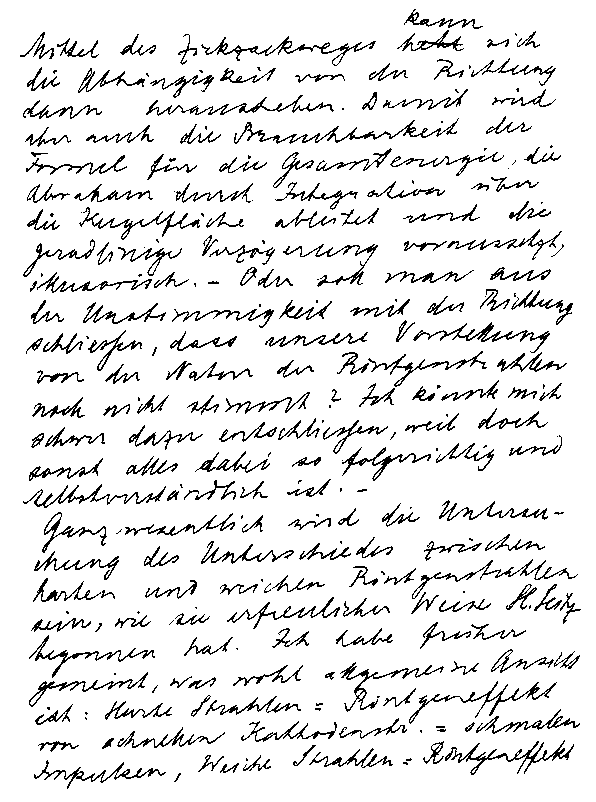 kann
Mittel des Zickzackweges hebt sich
die Abhängigkeit von der Richtung
dann herausheben. Damit wird
aber auch die Brauchbarkeit der
Formel für die Gesamtenergie, die
Abraham durch Integration über
die Kugelfläche ableitet und die
geradlinige Verzögerung voraussetzt,
illusorisch. – Oder soll man aus
der Unstimmigkeit mit der Richtung
schliessen, dass unsere Vorstellung
von der Natur der Röntgenstrahlen
noch nicht stimmt? Ich könnte mich
schwer dazu entschliessen, weil doch
sonst alles dabei so folgerichtig und
selbstverständlich ist. –
Ganz wesentlich wird die Untersu-
chung des Unterschiedes zwischen
harten und weichen Röntgenstrahlen
sein, wie sie erfreulicher Weise H. Seitz
begonnen hat. Ich habe früher
gemeint, was wohl allgemeine Ansicht
ist: Harte Strahlen = Röntgeneffekt
von schnellen Kathodenstr. = schmalen
Impulsen, Weiche Strahlen = Röntgeneffekt